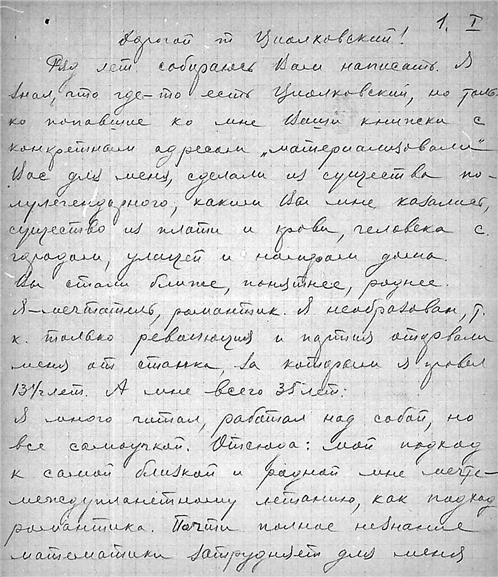 1. I
Дорогой т Циолковский!
Ряд лет собираюсь Вам написать. Я
знал, что где-то есть Циолковский, но толь
ко попавшие ко мне Ваши книжки с
конкретным адресом „материализовали"
Вас для меня, сделали из существа по-
лулегендарного, каким Вы мне казались,
существо из плоти и крови, человека с
городом, улицей и номером дома.
Вы стали ближе, понятнее, роднее.
Я-мечтатель, романтик. Я необразован, т.
к. только революция и партия оторвали
меня от станка, за которым я провел
13½ лет. А мне всего 35 лет.
Я много читал, работал над собой, но
все самоучкой. Отсюда: мой подход
к самой близкой и родной мне мечте-
междупланетному летанию, как подход
романтика. Почти полное незнание
математики затрудняет для меня